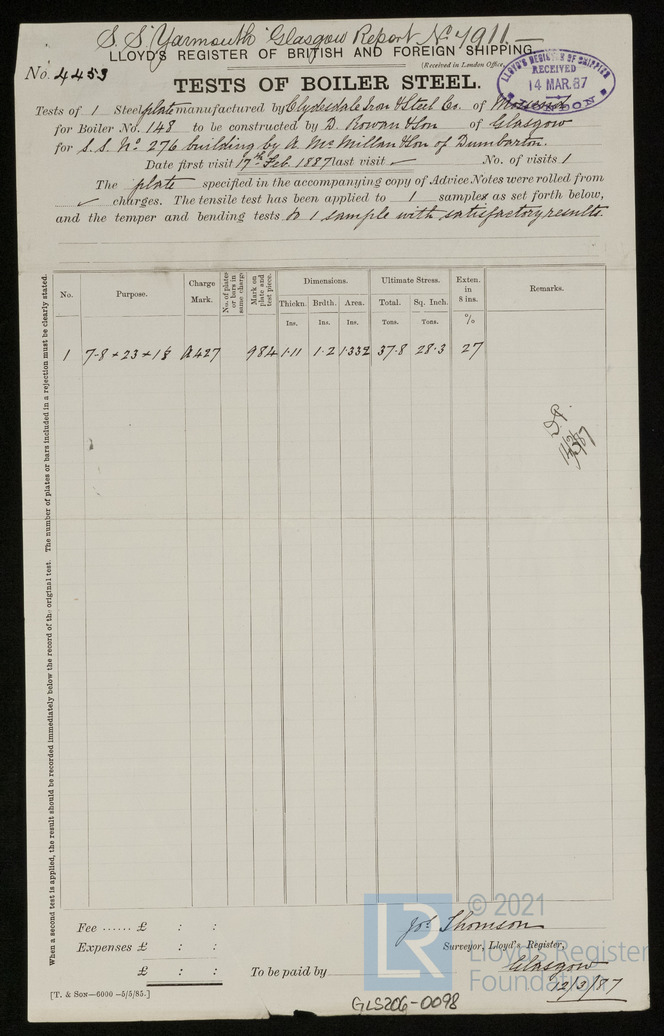 S.S. "Yarmouth" Glasgow Report No 7911
LLOYD'S REGISTER OF BRITISH AND FOREIGN SHIPPING.
(Received in London Office,
LLOYD'S REGISTER OF SHIPPING
RECEIVED
14 MAR.87
LONDON
No. 4453
TESTS OF BOILER STEEL.
Tests of 1 Steel plate manufactured by Clydesdale Iron & Steel Co. of
for Boiler No. 148 to be constructed by D. Rowan & Son of Glasgow
for S.S. No 276 building by A. McMillan & Son of Dumbarton.
Date first visit 17th Feb. 1887 last visit ✓ No. of visits 1
The plate specified in the accompanying copy of Advice Notes were rolled from
✓ charges. The tensile test has been applied to 1 samples as set forth below,
and the temper and bending tests to 1 sample with satisfactory results.
No. Purpose. Charge Mark. No. of plates or bars in same charge Mark on plate and test piece. Dimensions. Ultimate Stress. Exten. in 8 ins. Remarks.
Thickn. Brdth. Area. Total. Sq. Inch.
Ins. Ins. Ins. Tons. Tons. %
1 7-8 × 23 × 1⅛ A427 984 1·11 1·2 1·332 37·8 28·3 27
When a second test is applied, the result should be recorded immediately below the record of the original test. The number of plates or bars included in a rejection must be clearly stated.
Fee ...... £ : :
Expenses £ : :
£ : :
To be paid by
Jos. Thomson
Surveyor, Lloyd's Register,
Glasgow
12/3/87
[T. & SON—6000—5/5/85.]
GLS206-0098
LR
© 2021
Lloyd's Register
Foundation